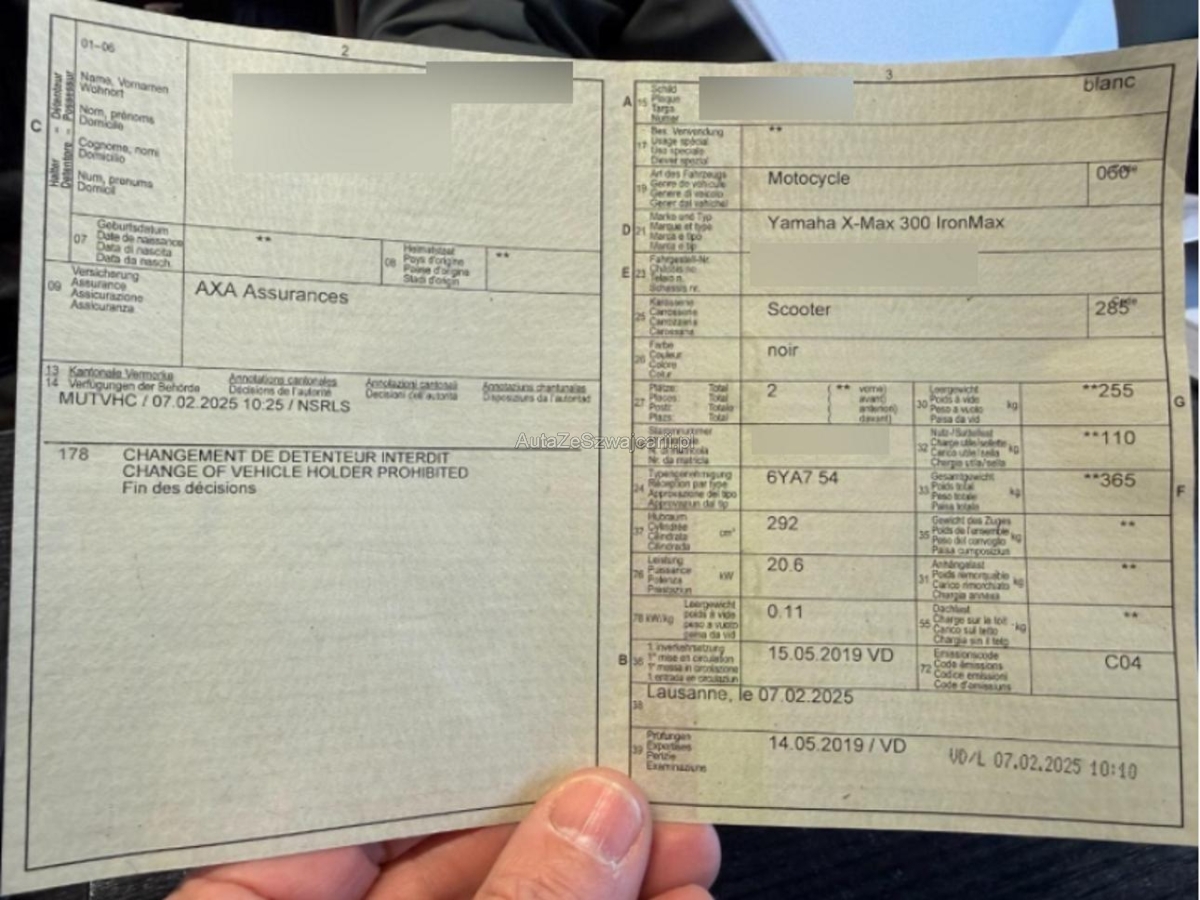 2
01-06
Name, Vornamen
Wohnort
Nom, prénoms
Domicile
Cognome, nomi
Domicilio
Num, prenums
Domicil
C
Halter - Détenteur
Detentore - Possessur
07
Geburtsdatum
Date de naissance
Data di nascita
Data da nasch.
**
08
Heimatstaat
Pays d'origine
Paese d'origine
Stadi d'origin
**
09
Versicherung
Assurance
Assicurazione
Assicuranza
AXA Assurances
13 Kantonale Vermerke Annotations cantonales Annotazioni cantonali Annotaziuns chantunales
14 Verfügungen der Behörde Décisions de l'autorité Decisioni dell'autorità Disposiziuns da l'autoritad
MUTVHC / 07.02.2025 10:25 / NSRLS
178 CHANGEMENT DE DETENTEUR INTERDIT
CHANGE OF VEHICLE HOLDER PROHIBITED
Fin des décisions
3
A 15
Schild
Plaque
Targa
Numer
blanc
17
Bes. Verwendung
Usage spécial
Uso speciale
Diever spezial
**
19
Art des Fahrzeugs
Genre de véhicule
Genere di veicolo
Gener dal vehichel
Motocycle
Code
060
D 21
Marke und Typ
Marque et type
Marca e tipo
Marca e tip
Yamaha X-Max 300 IronMax
E 23
Fahrgestell-Nr.
Châssis no.
Telaio n.
Schassis nr.
25
Karosserie
Carrosserie
Carrozzeria
Carossaria
Scooter
Code
285
26
Farbe
Couleur
Colore
Colur
noir
27
Plätze: Total
Places: Total
Posti: Totale
Plazs: Total
2
( ** vorne)
( avant)
( anteriori)
( davant)
30
Leergewicht
Poids à vide
Peso a vuoto
Paisa da vid
kg
**255
G
Stammnummer
Nr. di matricola
Nr. da matricla
32
Nutz-/Sattellast
Charge utile/sellette
Carico utile/sella
Chargia utila/sella
kg
**110
24
Typengenehmigung
Réception par type
Approvazione del tipo
Approvaziun dal tip
6YA7 54
33
Gesamtgewicht
Poids total
Peso totale
Paisa totala
kg
**365
F
37
Hubraum
Cylindrée
Cilindrata
Cilindrada
cm³
292
35
Gewicht des Zuges
Poids de l'ensemble
Peso del convoglio
Paisa cumposiziun
kg
**
76
Leistung
Puissance
Potenza
Prestaziun
kW
20.6
31
Anhängelast
Poids remorquable
Carico rimorchiato
Chargia annexa
kg
**
78 kW/kg
Leergewicht
poids à vide
peso a vuoto
paisa da vid
0.11
55
Dachlast
Charge sur le toit
Carico sul tetto
Chargia sin il tetg
kg
**
B 36
1. Inverkehrsetzung
1re mise en circulation
1a messa in circolazione
1. entrada en circulaziun
15.05.2019 VD
72
Emissionscode
Code émissions
Codice emissioni
Code d'emissiuns
C04
38
Lausanne, le 07.02.2025
39
Prüfungen
Expertises
Perizie
Examinaziuns
14.05.2019 / VD
VD/L 07.02.2025 10:10
AutaZeSzwajcarii.pl